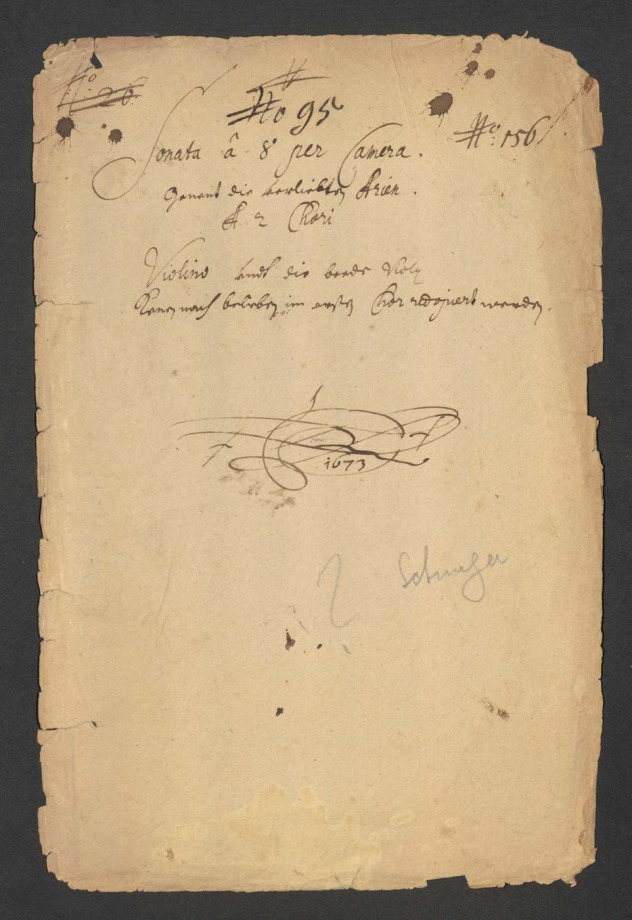 No 20
No 95
No: 156
Sonata â 8 per Camera.
Genant die verliebten Arien.
A 2 Chori
Violino undt die beede Viole
Kenen nach belieben im ersten Chor redopiert werden.
1673